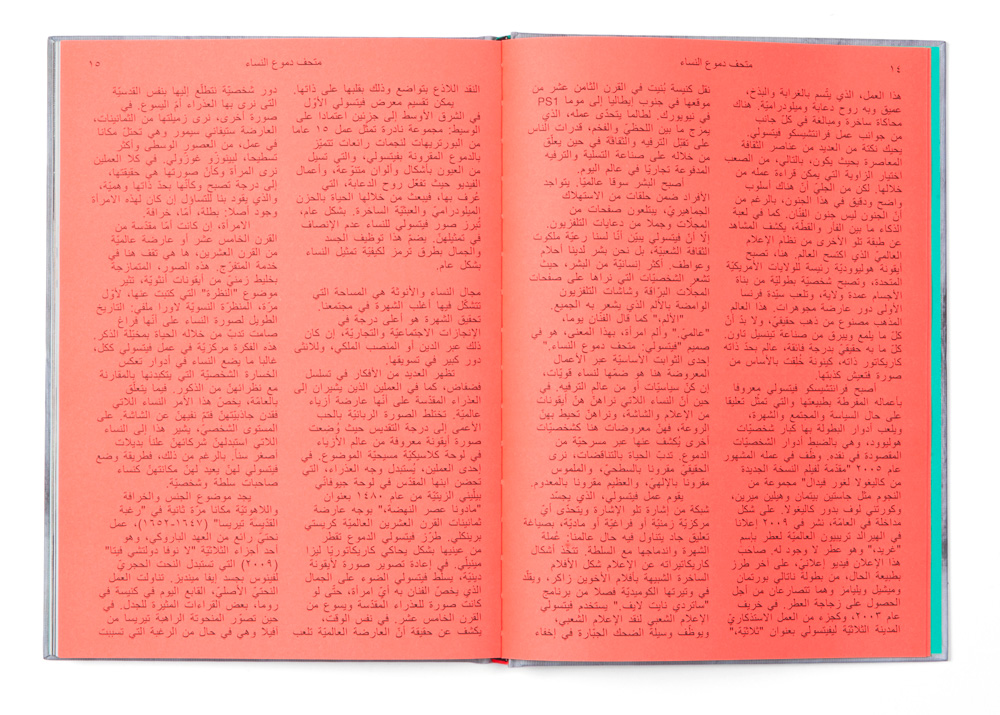 ١٤
متحف دموع النساء
هذا العمل، الذي يتّسم بالغرابة والبذخ،
عميق وبه روح دعابة وميلودراميّة. هناك
محاكاة ساخرة ومبالغة في كلّ جانب
من جوانب عمل فرانتشيسكو فيتسولي.
يحيك نكتة من العديد من عناصر الثقافة
المعاصرة بحيث يكون، بالتالي، من الصعب
اختيار الزاوية التي يمكن قراءة عمله من
خلالها. لكن من الجليّ أنّ هناك أسلوب
واضح ودقيق في هذا الجنون، بالرغم من
أنّ الجنون ليس جنون الفنّان. كما في لعبة
الذكاء ما بين الفأر والقطّة، يكشف المشاهد
عن طبقة تلو الأخرى من نظام الإعلام
العالميّ الذي اكتسح العالم. هنا، تُصبح
أيقونة هوليووديّة رئيسة للولايات الأمريكيّة
المتحدة، وتصبح شخصيّة بطوليّة من بناة
الأجسام عمدة ولاية، وتلعب سيّدة فرنسا
الأولى دور عارضة مجوهرات. هذا العالم
المذهب مصنوع من ذهب حقيقيّ، ولا بدّ أنّ
كلّ ما يلمع ويبرق من صناعة تينسيل تاون.
كلّ ما به حقيقيّ بدرجة فائقة، عالم بحدّ ذاته
كاريكاتور ذاته؛ كينونة خُلقت بالأساس من
صورة فتعيش كذبتها.
أصبح فرانتشيسكو فيتسولي معروفا
بأعماله المفرطة بطبيعتها والتي تمثّل تعليقا
على حال السياسة والمجتمع والشهرة،
ويلعب أدوار البطولة بها كبار شخصيّات
هوليوود، وهي بالضبط أدوار الشخصيّات
المقصودة في نقده. وظّف في عمله المشهور
عام ٢٠٠٥ "مقدّمة لفيلم النسخة الجديدة
من كاليغولا لغور فيدال" مجموعة من
النجوم مثل جاستين بيتمان وهيلين ميرين،
وكورتني لوف بدور كاليغولا. على شكل
مداخلة في العامّة، نشر في ٢٠٠٩ إعلانا
في الهيرالد تريبيون العالميّة لعطر بإسم
"غريد،" وهو عطر لا وجود له. صاحب
هذا الإعلان فيديو إعلانيّ، على آخر طرز
بطبيعة الحال، من بطولة ناتالي بورتمان
وميشيل ويليامز وهما تتصارعان من أجل
الحصول على زجاجة العطر. في خريف
عام ٢٠٠٣، وكجزء من العمل الاستذكاريّ
المدينة الثلاثيّة لفيتسولي بعنوان "ثلاثيّة،"
نقل كنيسة بُنيت في القرن الثامن عشر من
موقعها في جنوب إيطاليا إلى موما PS1
في نيويورك. لطالما يتحدّى عمله، الذي
يمزج ما بين اللحظيّ والفخم، قدرات الناس
على تقبّل الترفيه والثقافة في حين يعلّق
من خلاله على صناعة التسلية والترفيه
المدفوعة تجاريّا في عالم اليوم.
أصبح البشر سوقا عالميّا. يتواجد
الأفراد ضمن حلقات من الاستهلاك
الجماهيريّ، يبتلعون صفحات من
المجلات وجملا من دعايات التلفزيون.
إلّا أنّ فيتسولي يبيّن أنّا لسنا رعيّة ملكوت
الثقافة الشعبيّة، بل نحن بشر لدينا أحلام
وعواطف. أكثر إنسانيّة من البشر، حيث
تشعر الشخصيّات التي نراها على صفحات
المجلات البرّاقة وشاشات التلفزيون
الوامضة بالألم الذي يشعر به الجميع.
"الألم،" كما قال الفنّان يوما،
"عالميّ." وألم امرأة، بهذا المعنى، هو في
صميم "فيتسولي: متحف دموع النساء."
إحدى الثوابت الأساسيّة عبر الأعمال
المعروضة هنا هو ضمّها لنساء قويّات،
إن كنّ سياسيّات أو من عالم الترفيه. في
حين أنّ النساء اللاتي نراهنّ هنّ أيقونات
من الإعلام والشاشة، ونراهنّ تحيط بهنّ
الروعة، فهنّ معروضات هنا كشخصيّات
أخرى يُكشف عنها عبر مسرحيّة من
الدموع. تدبّ الحياة بالتناقضات، نرى
الحقيقيّ مقرونا بالسطحيّ، والملموس
مقرونا بالإلهيّ، والعظيم مقرونا بالمعدوم.
يقوم عمل فيتسولي، الذي يجسّد
شبكة من إشارة تلو الإشارة ويتحدّى أيّ
مركزيّة زمنيّة أو فراغيّة أو ماديّة، بصياغة
تعليق جاد يتناول فيه حال عالمنا: عُملة
الشهرة واندماجها مع السلطة. تتخّذ أشكال
كاريكاتيراته عن الإعلام شكل الأفلام
الساخرة الشبيهة بأفلام الأخوين زاكر، ويقلّد
في وتيرتها الكوميديّة فصلا من برنامج
"ساتردي نايت لايف." يستخدم فيتسولي
الإعلام الشعبي لنقد الإعلام الشعبي،
ويوظّف وسيلة الضحك الجبّارة في إخفاء
متحف دموع النساء
١٥
النقد اللاذع بتواضع وذلك بقلبها على ذاتها.
يمكن تقسيم معرض فيتسولي الأوّل
في الشرق الأوسط إلى جزئين اعتمادا على
الوسيط: مجموعة نادرة تمثل عمل ١٥ عاما
من البورتريهات لنجمات رائعات تتميّز
بالدموع المقرونة بفيتسولي، والتي تسيل
من العيون بأشكال وألوان متنوّعة، وأعمال
الفيديو حيث تفعّل روح الدعابة، التي
عُرف بها، فيبعث من خلالها الحياة بالحزن
الميلودراميّ والعبثيّة الساخرة. بشكل عام،
يُبرز صور فيتسولي للنساء عدم الإنصاف
في تمثيلهنّ. يضمّ هذا توظيف الجسد
والجمال بطرق ترمز لكيفيّة تمثيل النساء
بشكل عام.
مجال النساء والأنوثة هي المساحة التي
تتشكّل فيها أغلب الشهرة في مجتمعنا.
تحقيق الشهرة هو أعلى درجة في
الانجازات الاجتماعيّة والتجاريّة، إن كان
ذلك عبر الدين أو المنصب الملكي، وللانثى
دور كبير في تسويقها.
تظهر العديد من الأفكار في تسلسل
فضفاض، كما في العملين الذين يشيران إلى
العذراء المقدّسة على أنّها عارضة أزياء
عالميّة. تختلط الصورة الربانيّة بالحب
الأعمى إلى درجة التقديس حيث وُضعت
صورة أيقونة معروفة من عالم الأزياء
في لوحة كلاسيكيّة مسيحيّة الموضوع. في
إحدى العملين، يُستبدل وجه العذراء، التي
تحضن ابنها المقدّس في لوحة جيوفاني
بيليني الزيتيّة من عام ١٤٨٠ بعنوان
"مادونا عصر النهضة،" بوجه عارضة
ثمانينات القرن العشرين العالميّة كريستي
برينكلي. طرّز فيتسولي الدموع تقطر
من عينيها بشكل يحاكي كاريكاتوريّا ليزا
مينيلي. في إعادة تصوير صورة لأيقونة
دينيّة، يسلّط فيتسولي الضوء على الجمال
الذي يخصّ الفنان به أيّ امرأة، حتّى لو
كانت صورة للعذراء المقدّسة ويسوع من
القرن الخامس عشر. في نفس الوقت،
يكشف عن حقيقة أنّ العارضة العالميّة تلعب
دور شخصيّة نتطلّع إليها بنفس القدسيّة
التى نرى بها العذراء أمّ اليسوع. في
صورة أخرى، نرى زميلتها من الثمانينات،
العارضة ستيفاني سيمور وهي تحتلّ مكانا
في عمل، من العصور الوسطى وأكثر
تسطيحا، لبينوزو غوزولي. في كلا العملين
نرى المرأة وكأنّ صورتها هي حقيقتها،
إلى درجة تصبح وكأنّها بحدّ ذاتها وهميّة،
والذي يقود بنا للتساؤل إن كان لهذه الامرأة
وجود أصلا: بطلة، أمّا، خرافة.
الامرأة، إن كانت أمّا مقدّسة من
القرن الخامس عشر أو عارضة عالميّة
من القرن العشرين، ها هي تقف هنا في
خدمة المتفرّج. هذه الصور، المتمازجة
بخليط زمنيّ من أيقونات أنثويّة، تثير
موضوع "النظرة" التي كتبت عنها، لأوّل
مرّة، المنظّرة النسويّة لاورا ملفي: التاريخ
الطويل لصورة النساء على أنّها فراغ
صامت تدبّ من خلاله الحياة بمخيّلة الذكر.
هذه الفكرة مركزيّة في عمل فيتسولي ككل،
غالبا ما يضع النساء في أدوار تعكس
الخسارة الشخصيّة التي يتكبدنها بالمقارنة
مع نظرائهنّ من الذكور. فيما يتعلّق
بالعامّة، يخصّ هذا الأمر النساء اللاتي
فقدن جاذبيّتهنّ فتمّ نفيهنّ عن الشاشة. على
المستوى الشخصيّ، يشير هذا إلى النساء
اللاتي استبدلهنّ شركائهنّ علناً بديلات
أصغر سناً. بالرغم من ذلك، فطريقة وضع
فيتسولي لهنّ يعيد لهنّ مكانتهنّ كنساء
صاحبات سلطة وشخصيّة.
يجد موضوع الجنس والخرافة
واللاهوتيّة مكانا مرّة ثانية في "رغبة
القدّيسة تيريسا" (١٦٤٧-١٦٥٢)، عمل
نحتيّ رائع من العهد الباروكي، وهو
أحد أجزاء الثلاثيّة "لا نوفا دولتشي فيتا"
(٢٠٠٩) التي تستبدل النحت الحجريّ
لفينوس بجسد إيفا مينديز. تناولت العمل
النحتيّ الأصليّ، القابع اليوم في كنيسة في
روما، بعض القراءات المثيرة للجدل. في
حين تصوّر المنحوتة الراهبة تيريسا من
أفيلا وهي في حال من الرغبة التي تسببت